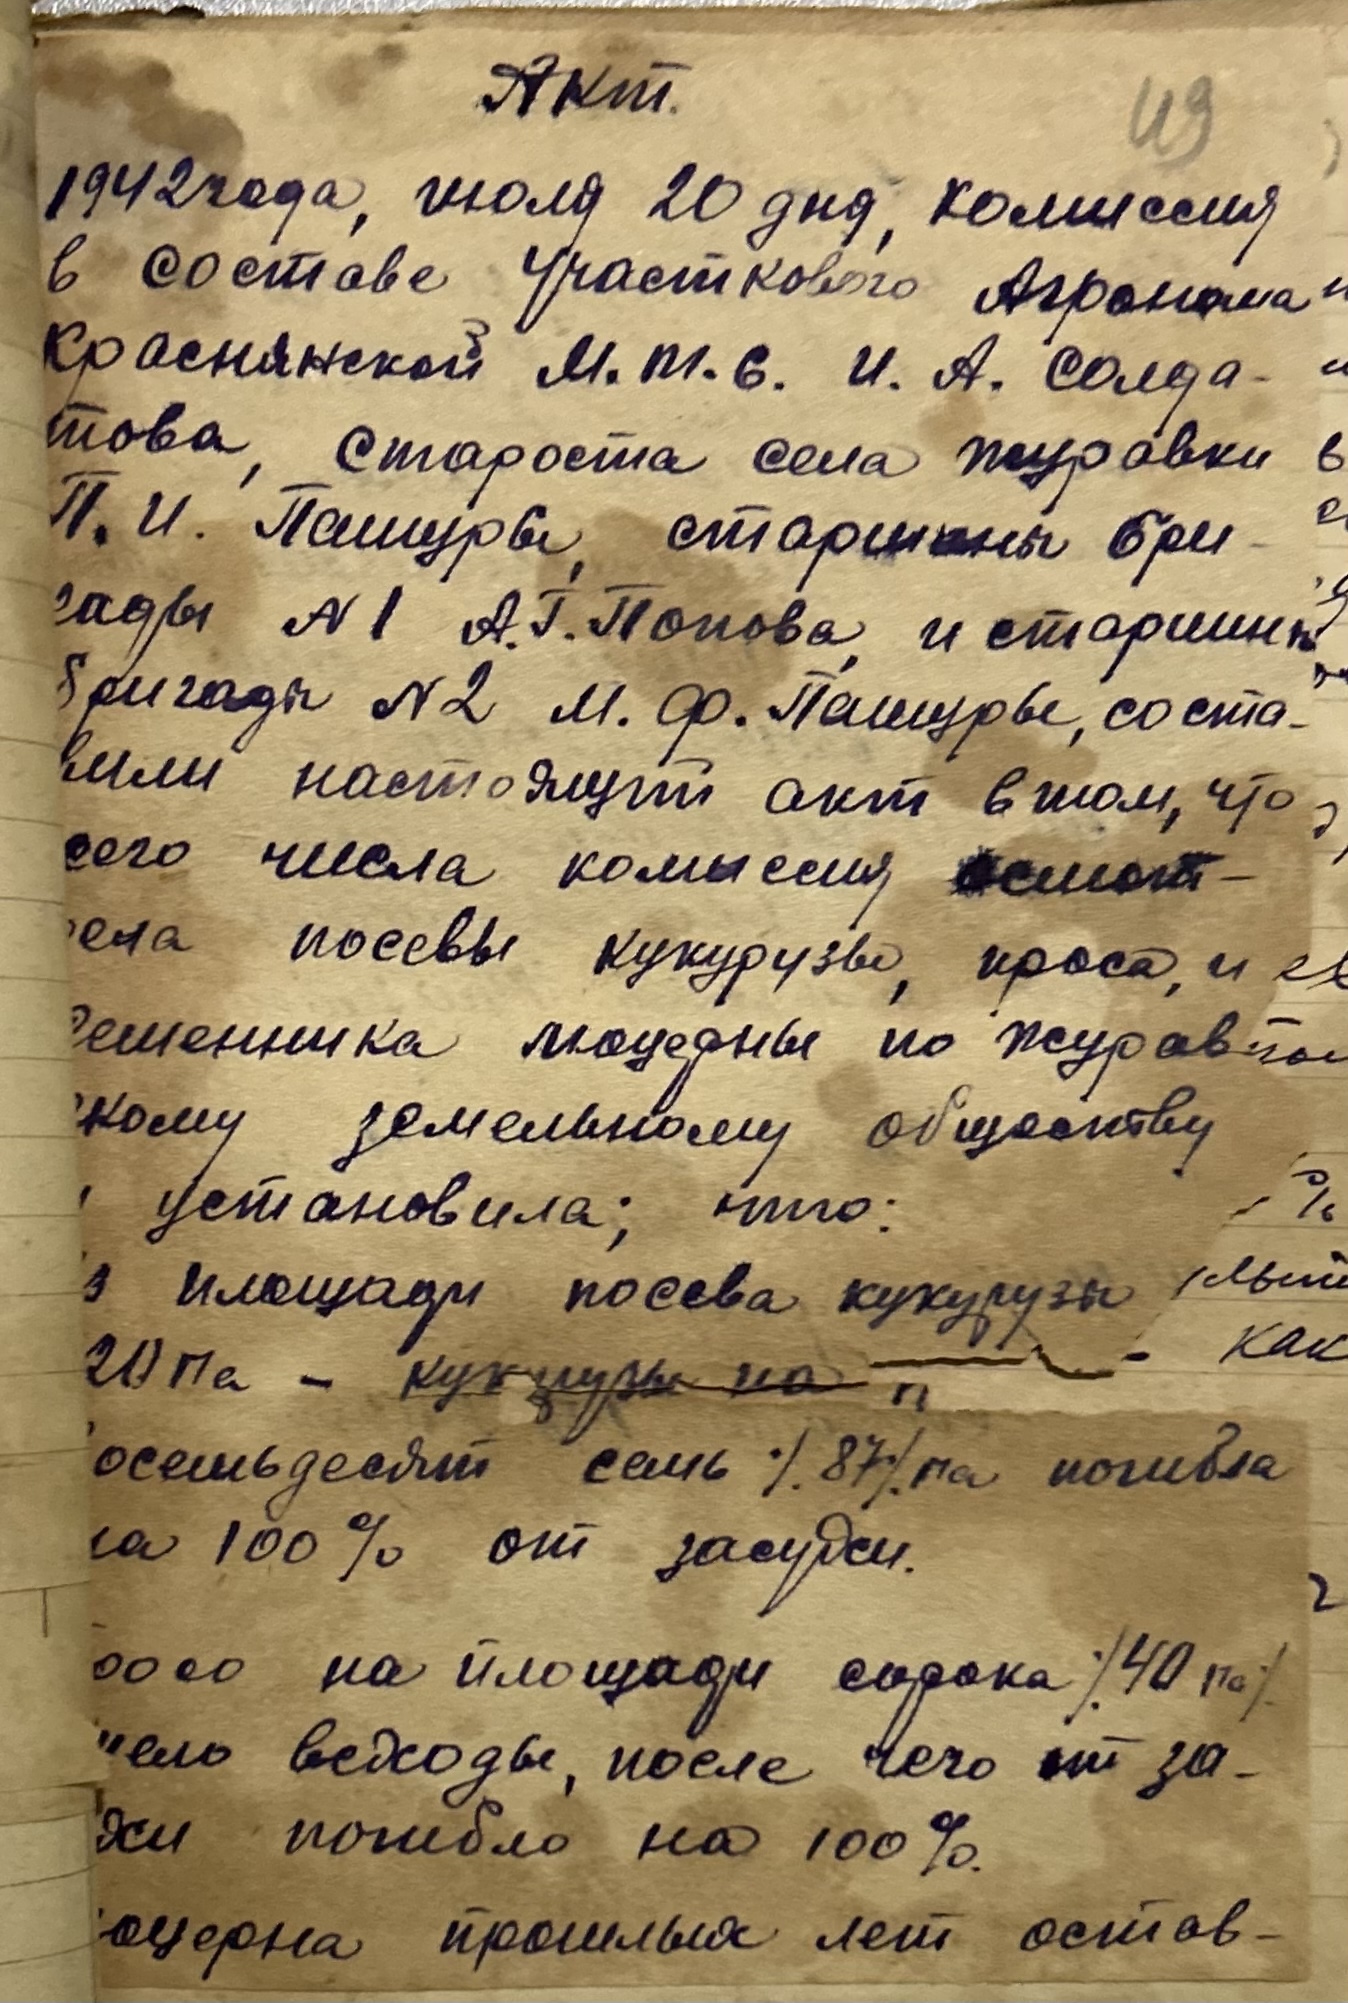 Акт.
49
1942 года, июля 20 дня, комиссия
в составе Участкового Агронома
Краснянской М.т.с. И. А. Солда-
това, Староста села Журавки
П. И. Пашуры, старшины бри-
гады N1 А.Г. Попова, и старшины
бригады N2 М. Ф. Пашуры, соста-
вили настоящут акт в том, что
сего числа комиссия осмот-
рела посевы кукурузы, проса, и
семенника люцерны по Журав
скому земельному обществу
и установила; что:
з площади посева кукурузы
20 га - кукурузы на
восемьдесят семь /. 87/. га погибла
на 100% от засухи.
росо на площади сорока /.40 га/.
мело всходы, после чего от за-
хи погибло на 100%.
юцерна прошлых лет остав-
как